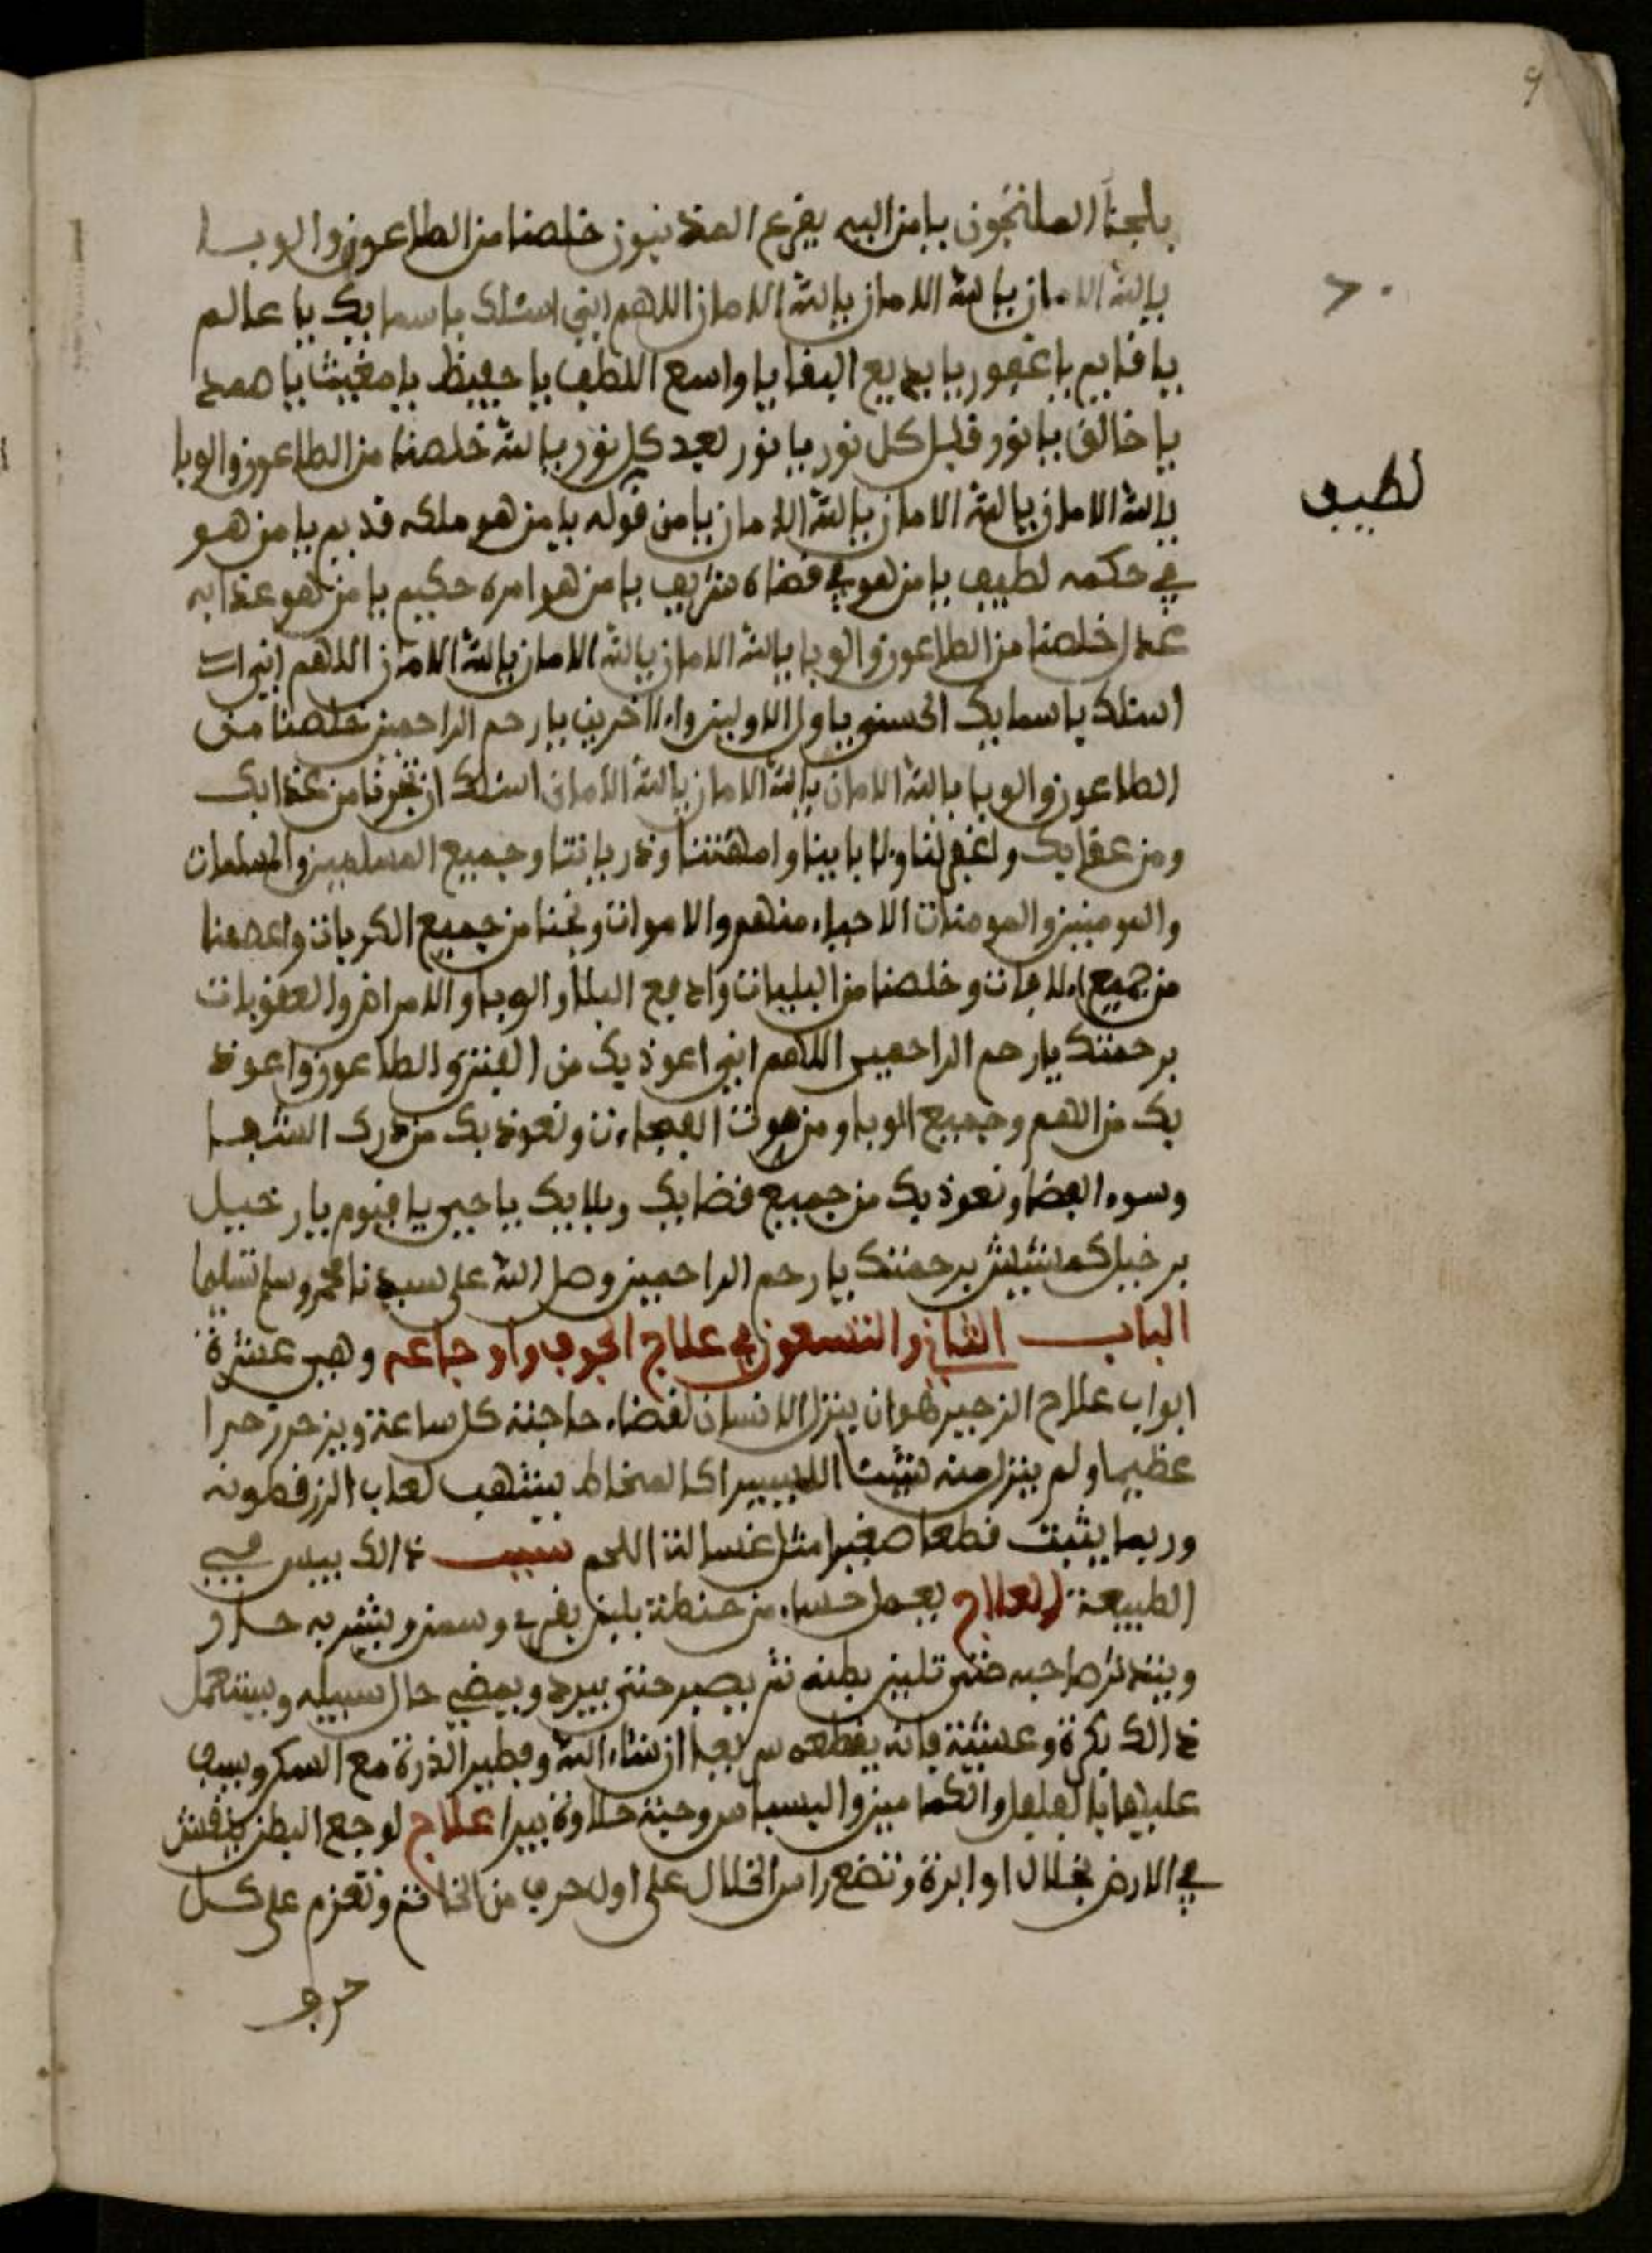 يلجئا الملتجون يا من اليه يفزع المذنبون خلصنا من الطاعون والوبا
يا الله الامان يا الله الامان يا الله الامان اللهم اني اسئلك باسمايك يا عالم
يا قايم يا غفور يا بديع البقا يا واسع اللطف يا حفيظ يا مغيث يا صمد
يا خالق يا نور قبل كل نور يا نور بعد كل نور يا الله خلصنا من الطاعون والوبا
يا الله الامان يا الله الامان يا الله الامان يا من قوله يا من هو ملكه قديم يا من هو
في حكمه لطيف يا من هو في قضاه شريف يا من هو امره حكيم يا من هو عذابه
عدل خلصنا من الطاعون والوبا يا الله الامان يا الله الامان يا الله الامان اللهم اني اس
اسئلك باسمايك الحسنى يا ول الاولين والاخرين يا رحم الراحمين خلصنا من
الطاعون والوبا يا الله الامان يا الله الامان يا الله الامان اسئلك ان تجرنا من عذابك
ومن عقابك واغفر لنا ولا باينا وامهتنا وذرياتنا وجميع المسلمين والمسلمات
والمومنين والمومنات الاحياء منهم والاموات ونجنا من جميع الكربات واعصمنا
من جميع الافات وخلصنا من البليات وادفع البلا والوبا والامراض والعقوبات
برحمتك يا رحم الراحمين اللهم اني اعوذ بك من الفتن والطاعون واعوذ
بك من الهم وجميع الوبا ومن موت الفجاءت ونعوذ بك من درك الشقا
وسوء القضا ونعوذ بك من جميع قضايك وبلايك يا حي يا قيوم يا رخييل
برحمتك يا رحم الراحمين وصل الله على سيدنا محمد وسلم تسليما
الباب الثاني والتسعون في علاج الجوف واوجاعه وهي عشرة
ابواب علاج الزحير هو ان ينزل الانسان لقضاء حاجته كل ساعة ويزحر زحيرا
عظيما ولم ينزل منه شيئا الا يسيرا كالمخاط يشهب لعاب الزرقطونه
وربما يثبت قطعا صغيرا مثل غسالة اللحم سبب ذالك يبس في
الطبيعة العلاج يعمل حساء من حنطة بلبن بقري وسمن ويشربه حار
ويتدثر صاحبه حتى تلين بطنه ثم يصبر حتى يبرد ويمضي حال سبيله ويستعمل
ذالك بكرة وعشية فانه يقطعه سريعا ان شاء الله وفطير الذرة مع السكر وسف
عليها بالفلفل والكمامين واليسباس وحبة حلاوة يبرا علاج لوجع البطن ينقش
في الارض بخلال او ابرة وتضع راس الخلال على اول حرف من الخاتم وتعزم على كل
حرف
لطيف